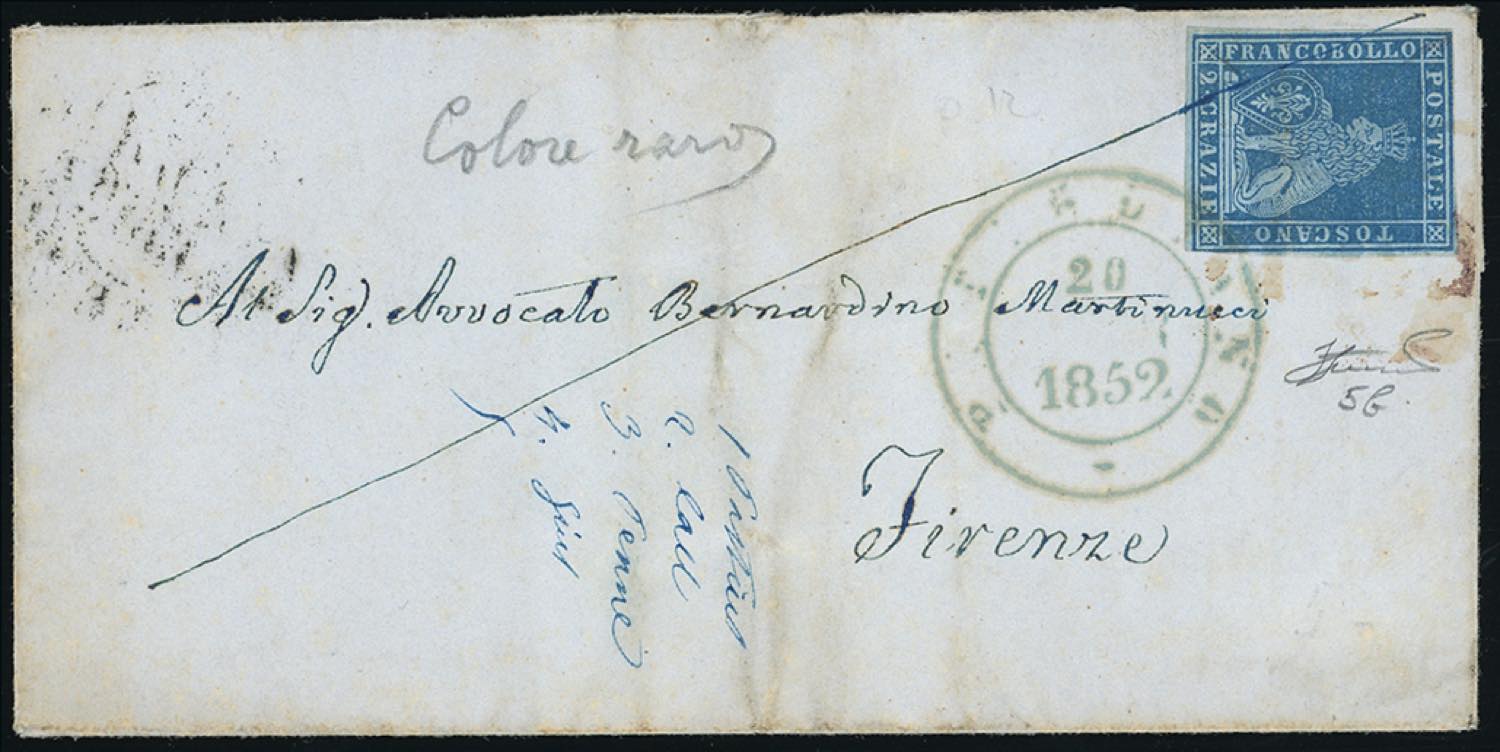 FRANCOBOLLO
POSTALE
TOSCANO
2 GRAZIE
Colore raro
20
1852
Al Sig. Avvocato Bernardino Martinucci
Firenze
56
1
2.
3. Penne
4.